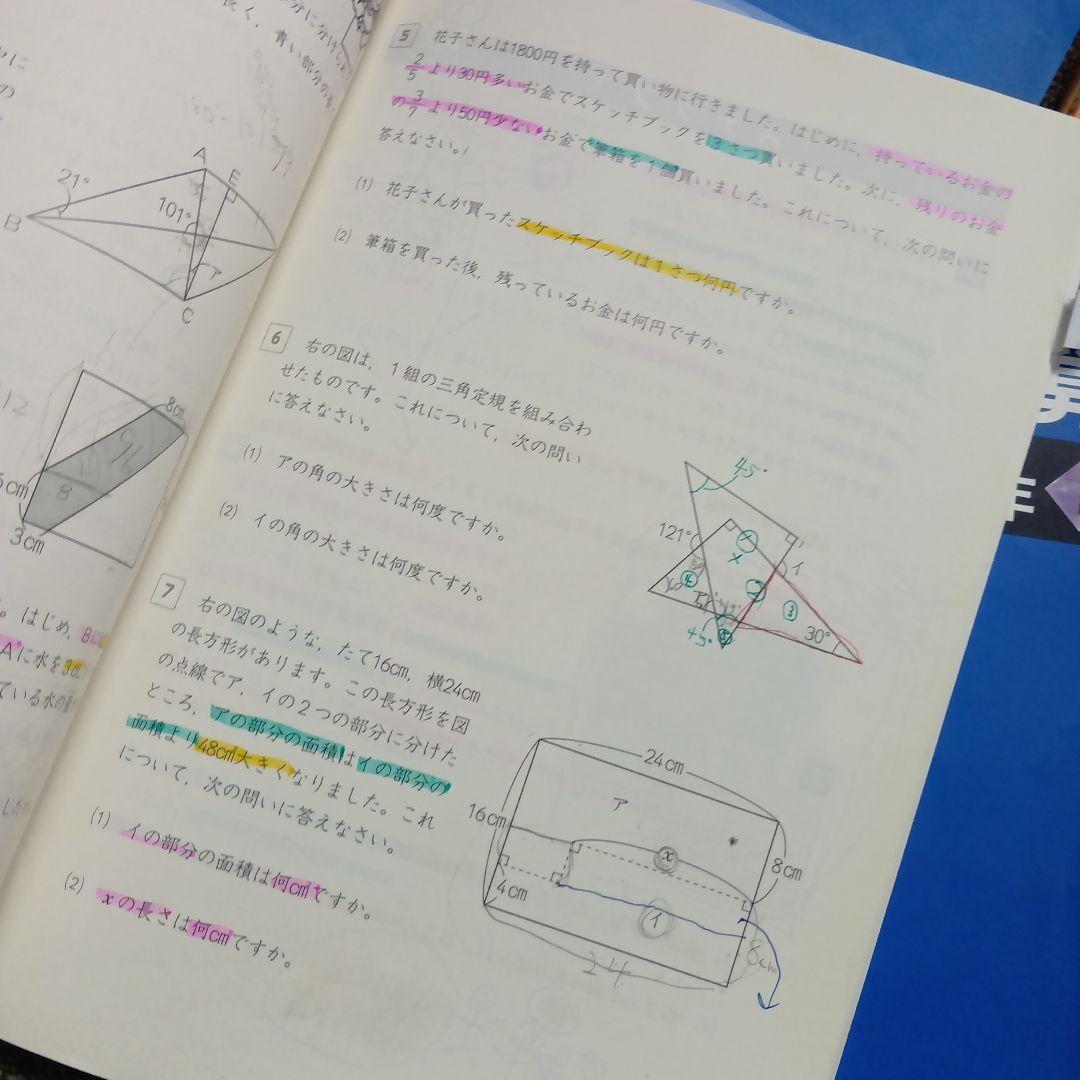 A
E
21°
101°
B
ア
C
8cm
8
3cm
5
花子さんは1800円を持って買い物に行きました。はじめに，持っているお金の
2/5より30円多いお金でスケッチブックを3さつ買いました。次に，残りのお金
の3/7より50円少ないお金で筆箱を1個買いました。これについて，次の問いに
答えなさい。
(1) 花子さんが買ったスケッチブックは1さつ何円ですか。
(2) 筆箱を買った後，残っているお金は何円ですか。
6
右の図は，1組の三角定規を組み合わ
せたものです。これについて，次の問い
に答えなさい。
(1) アの角の大きさは何度ですか。
(2) イの角の大きさは何度ですか。
45°
121°
イ
ア
30°
45°
7
右の図のような，たて16cm，横24cm
の長方形があります。この長方形を図
の点線でア，イの2つの部分に分けた
ところ，アの部分の面積はイの部分の
面積より48cm²大きくなりました。これ
について，次の問いに答えなさい。
(1) イの部分の面積は何cm²ですか。
(2) xの長さは何cmですか。
24cm
ア
16cm
x
8cm
4cm
イ
8cm
24